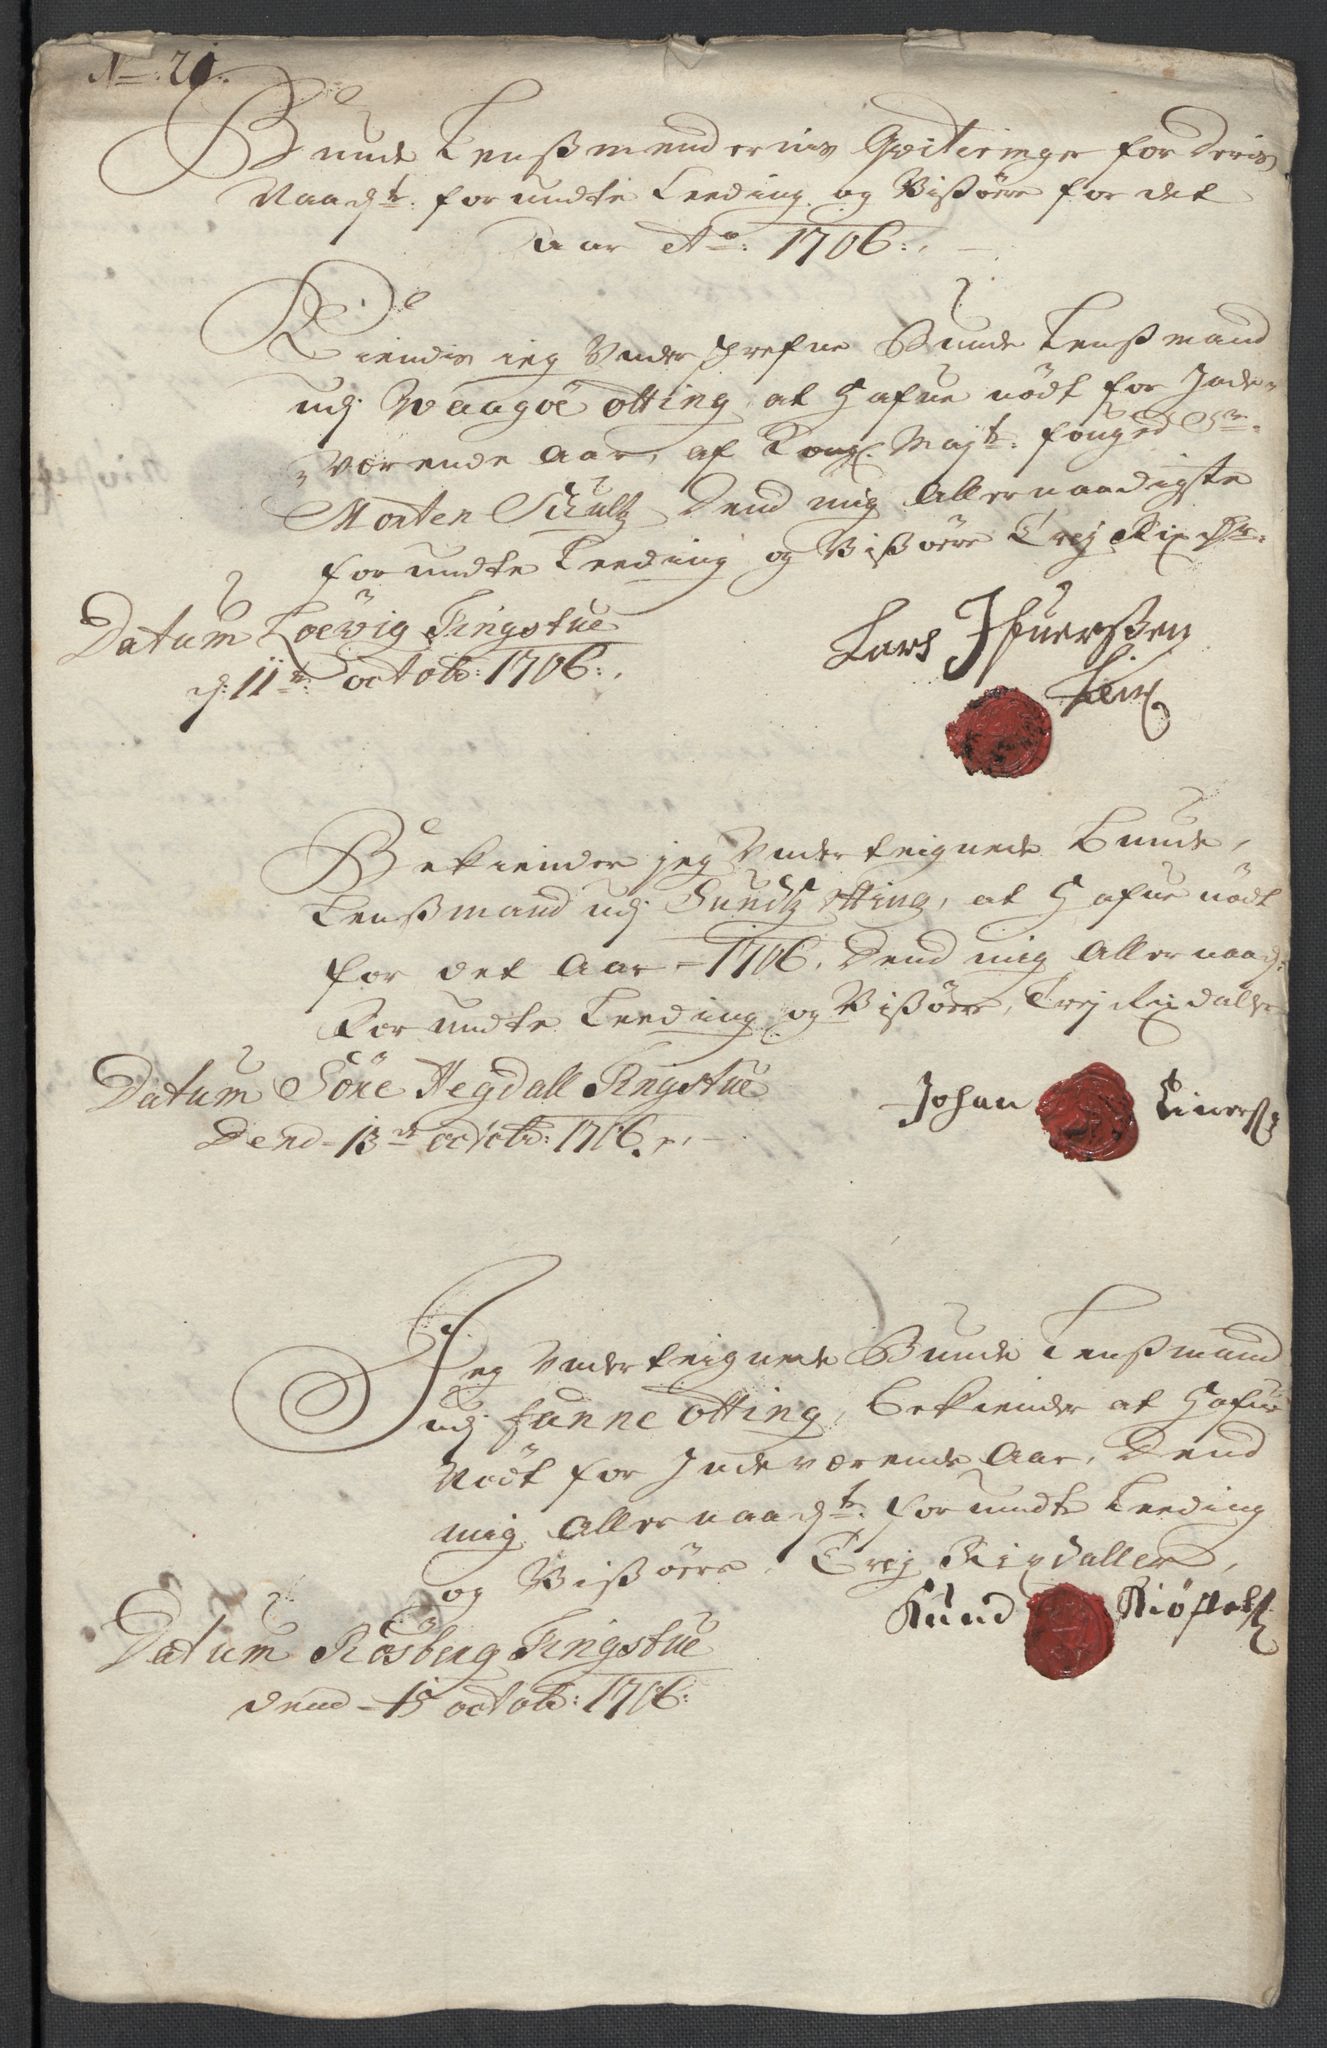 No: 21.
Bunde Lenßmendernis Qviteringer for Deris
Naadt: forundte Leeding og Vißøere for det
Aar Ao: 1706:
Kiendis ieg Underschrefne Bunde Lenßmand
udj Waagöe otting at Hafue nödt for Inde-
værende Aar, af Kongl. Maytz: fouged Sr.
Morten Schultz Dend mig Allernaadigste
forundte Leeding og Vißøere Trej Rix dlr:
Datum Loevig Tingstue
d: 11te: octobr: 1706:
Lars Ifuerßen
Bekiender jeg Underteignede Bunde
Lenßmand udj Sundtz otting, at Hafue nödt
for det Aar 1706, Dend mig Allernaad:
Forundte Leeding og Vißøere, Trej Rixdaller
Datum Söre Aegdall Tingstue
Dend 13de octob: 1706
Johan Einerß
Jeg Underteignede Bunde Lenßmand
udj fanne otting, bekiender at Hafue
Nödt for Indeværende Aar, Dend
mig Allernaadt: forundte Leeding
og Vißøere, Trej Rixdaller,
Knud
Datum Røsberg Tingstue
dend 15 octob: 1706: